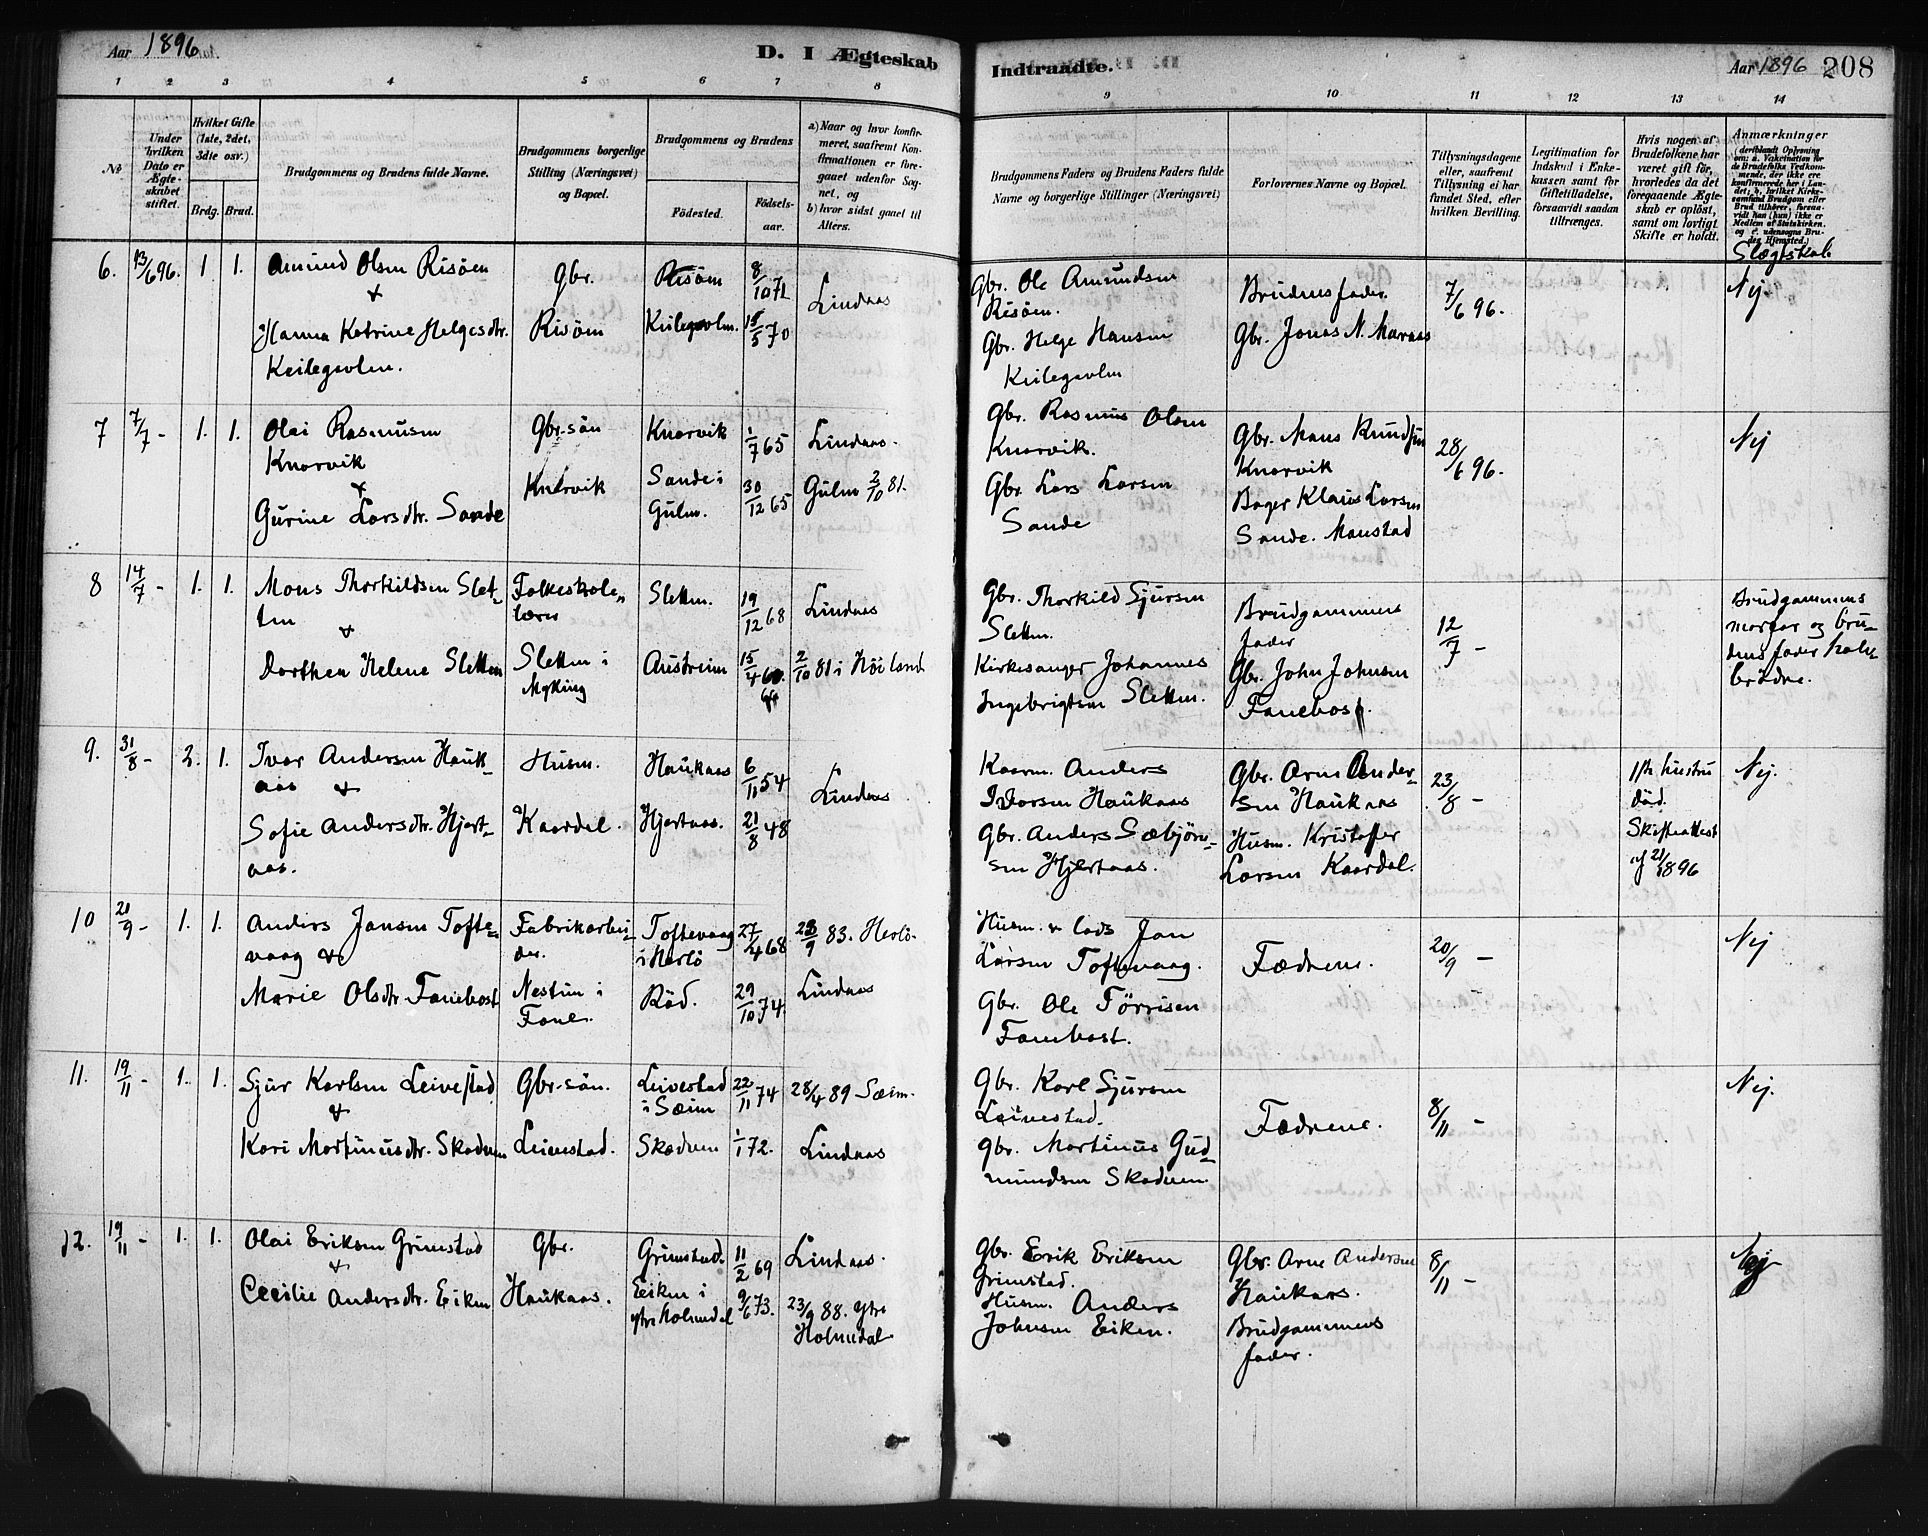 Aar 1896
D. I Ægteskab
Indtraadte.
Aar 1896 208
1 2 3 4 5 6 7 8 9 10 11 12 13 14
№
Under hvilken Dato er Ægteskabet stiftet.
Hvilket Gifte (1ste, 2det, 3die osv.)
Brdg. Brud.
Brudgommens og Brudens fulde Navne.
Brudgommens borgerlige Stilling (Næringsvei) og Bopæl.
Brudgommens og Brudens
Fødested.
Fødselsaar.
a) Naar og hvor konfirmeret, saafremt Konfirmationen er foregaaet udenfor Sognet, og
b) hvor sidst gaaet til Alters.
Brudgommens Faders og Brudens Faders fulde Navne og borgerlige Stillinger (Næringsvei)
Forlovernes Navne og Bopæl.
Tillysningsdagene eller, saafremt Tillysning ei har fundet Sted, efter hvilken Bevilling.
Legitimation for Indskud i Enkekassen samt for Giftetilladelse, forsaavidt saadan tiltrænges.
Hvis nogen af Brudefolkene har været gift før, hvorledes da det foregaaende Ægteskab er opløst, samt om lovligt Skifte er holdt.
Anmærkninger (deriblandt Oplysning om: a. Vakcination for de Brudefolks Vedkommende, der ikke ere konfirmerede her i Landet; b. hvilket Kirkesamfund Brudgom eller Brud tilhører, forsaavidt han (hun) ikke er Medlem af Statskirken, og c. udensogns Brudes Hjemsted.)
Slægtskab
6. 13/6 96. 1. 1. Amund Olsen Risöen
&
Hanna Katrine Helgesdtr.
Keilegavlen.
Gbr.
Risöen
Risöen
Keilegavlen.
8/10 71
15/5 70
Lindaas
Gbr. Ole Amundsen
Risöen.
Gbr. Helge Hansen
Keilegavlen
Brudens fader.
Gbr. Jonas N. Maraas
7/6 96.
Nej.
7 7/7 - 1. 1. Olai Rasmusen
Knarvik
&
Gurine Larsdtr. Sande
Gbr.sön
Knarvik
Knarvik
Sande i
Gulen.
1/7 65
30/12 65
Lindaas.
Gulen 2/10 81.
Gbr. Rasmus Olsen
Knarvik.
Gbr. Lars Larsen
Sande
Gbr. Mons Knudsen
Knarvik
Bager Klaus Larsen
Sande. Monstad
28/6 96.
Nej
8 14/7 - 1. 1. Mons Thorkildsen Slet-
ten
&
Dorthea Helene Sletten
Folkeskole-
lærer
Sletten i
Myking
Sletten.
Austreim
19/12 68
15/4 60.
64
Lindaas
2/10 81 i Höiland
Gbr. Thorkild Sjursen
Sletten.
Kirkesanger Johannes
Ingebrigtsen Sletten.
Brudgommens
fader
Gbr. John Johnsen
Fanebost.
12/7 -
Brudgommens
morfar og bru-
dens fader halv-
brödre.
9. 31/8 - 2. 1. Ivar Andersen Hauk-
aas &
Sofie Andersdtr. Hjert-
aas.
Husm.
Kaardal.
Haukaas
Hjertaas.
6/11 54
21/8 48
Lindaas
Kaarm. Anders
Ivarsen Haukaas
Gbr. Anders Sæbjörn-
sen Hjertaas.
Gbr. Arne Ander-
sen Haukaas
Husm. Kristoffer
Larsen Kaardal.
23/8 -
1ste hustru
död.
Skifteattest
af 21/8 96
Nej.
10 20/9 - 1. 1. Anders Jansen Tofte-
vaag &
Marie Olsdtr. Fanebost
Fabrikarbei-
der.
Nestun i
Fane.
Toftevaag
i Herlö
Röd.
27/4 68
29/10 74.
23/9 83. Herlö.
Lindaas
Husm. & lods Jan
Larsen Toftevaag.
Gbr. Ole Törrisen
Fanebost.
Fædrene.
20/9 -
Nej
11. 19/11 - 1. 1. Sjur Karlsen Leivestad
&
Kari Martinusdtr. Skodven
Gbr.sön.
Leivestad.
Leivestad
i Sæim
Skodven
22/11 74
1/1 72.
28/4 89 Sæim.
Lindaas
Gbr. Karl Sjursen
Leivestad.
Gbr. Martinus Gud-
mundsen Skodven
Fædrene.
8/11 -
Nej.
12. 19/11 - 1. 1. Olai Eriksen Grimstad
&
Cecilie Andersdtr. Eiken
Gbr.
Haukaas.
Grimstad.
Eiken i
ytre Holmedal
11/2 69
9/6 73.
Lindaas.
23/9 88. ytre
Holmedal
Gbr. Erik Eriksen
Grimstad.
Husm. Anders
Johnsen Eiken.
Gbr. Arne Andersen
Haukaas.
Brudgommens
fader.
8/11 -
Nej